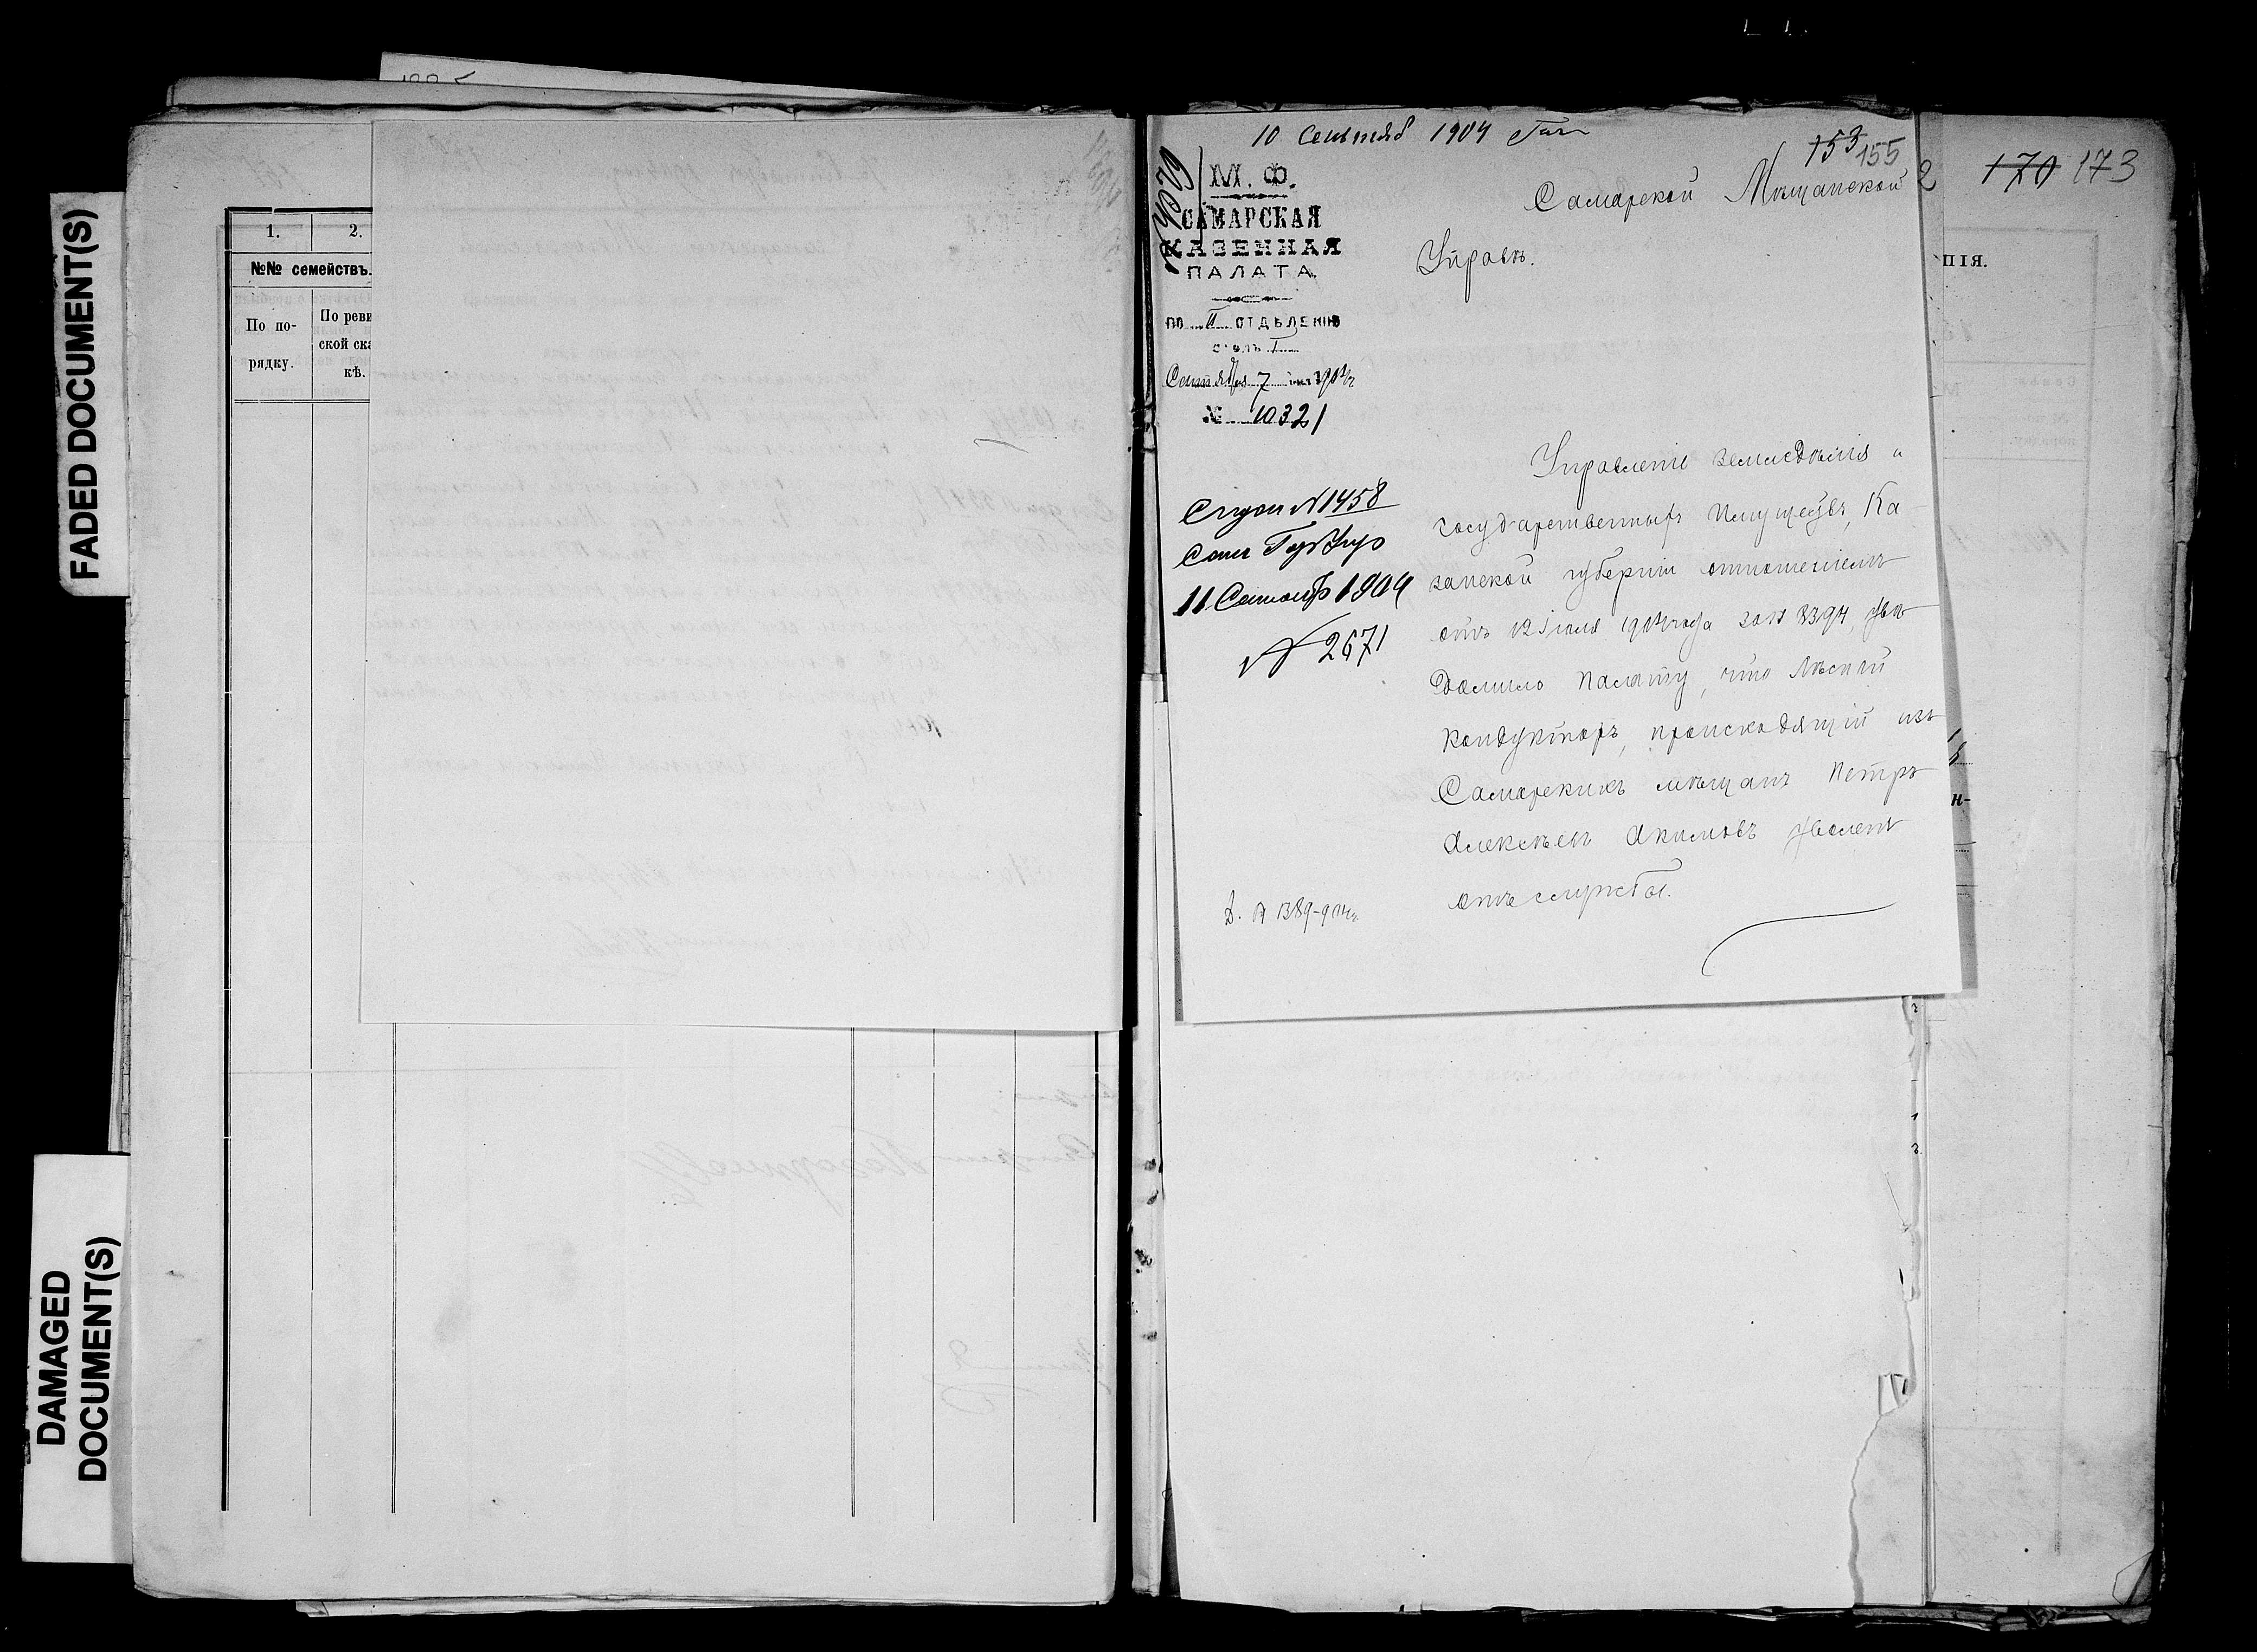 FADED DOCUMENT(S)
DAMAGED
DOCUMENT(S)
1. 2.
№№ семействъ.
По по-
рядку.
По реви
ской ска
кѣ.
10 Сентяб 1904
153 155
170 173
М. Ф.
САМАРСКАЯ
КАЗЕННАЯ
ПАЛАТА
по II отдѣленію
столъ I
Сентября 7 дня 1904 г
№ 10321
Самарской Мѣщанской
Управѣ.
Управленіе земледѣлія и
государственныхъ Имуществъ, Ка-
занской губерніи отношеніемъ
отъ 12 Іюля 1904 года за № 3394, увѣ-
домило Палату, что Лѣсной
кондукторъ, происходящій изъ
Самарскихъ мѣщанъ Петръ
Алексѣевъ Акимовъ уволенъ
отъ службы.
№ 1458
11 Сентяб 1904
№ 2671
Д. № 1389-904 г.
ПІЯ.